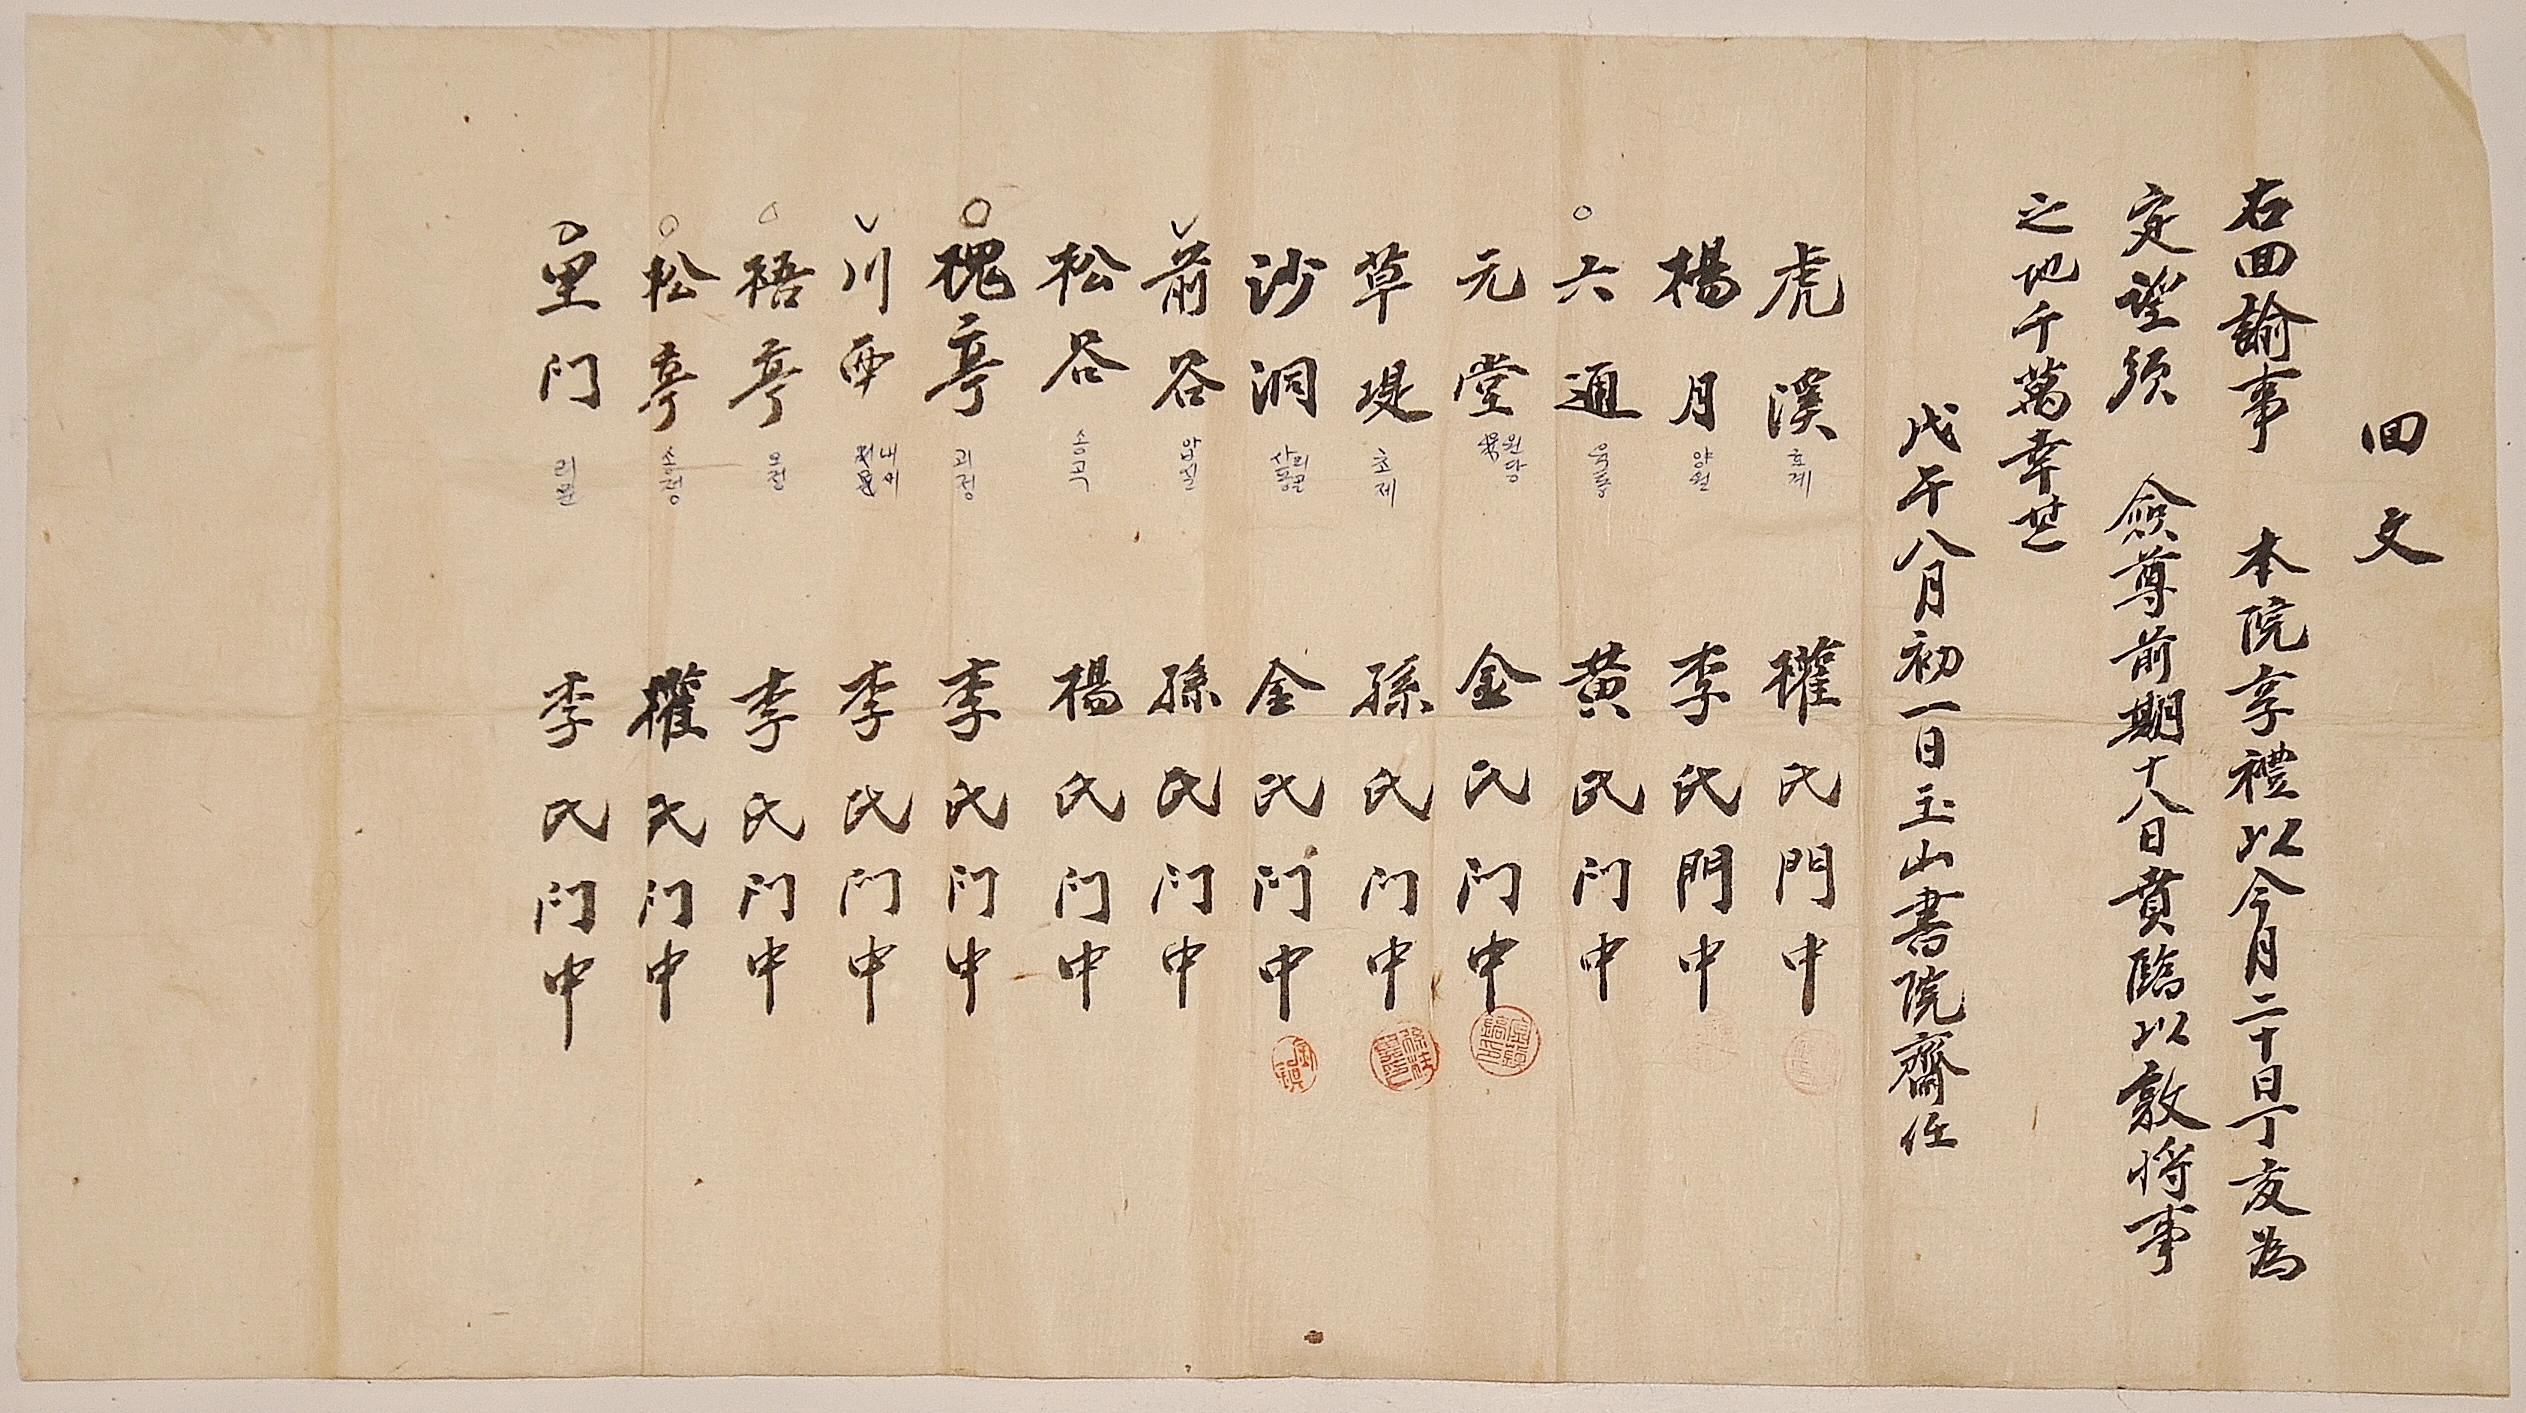 回文
右回諭事 本院享禮以今月二十日丁亥為
定望須 僉尊前期十八日賁臨以敦將事
之地千萬幸甚
戊午八月初一日玉山書院齋任
虎溪 호계 權氏門中
楊月 양월 李氏門中
六通 육통 黃氏门中
元堂 원당 金氏门中
草堤 초제 孫氏门中
沙洞 사동 리골 金氏门中
前谷 앞실 孫氏门中
松谷 송곡 楊氏门中
槐亭 괴정 李氏门中
川西 내서 李氏门中
梧亭 오정 李氏门中
松亭 송정 權氏门中
里门 리문 李氏门中